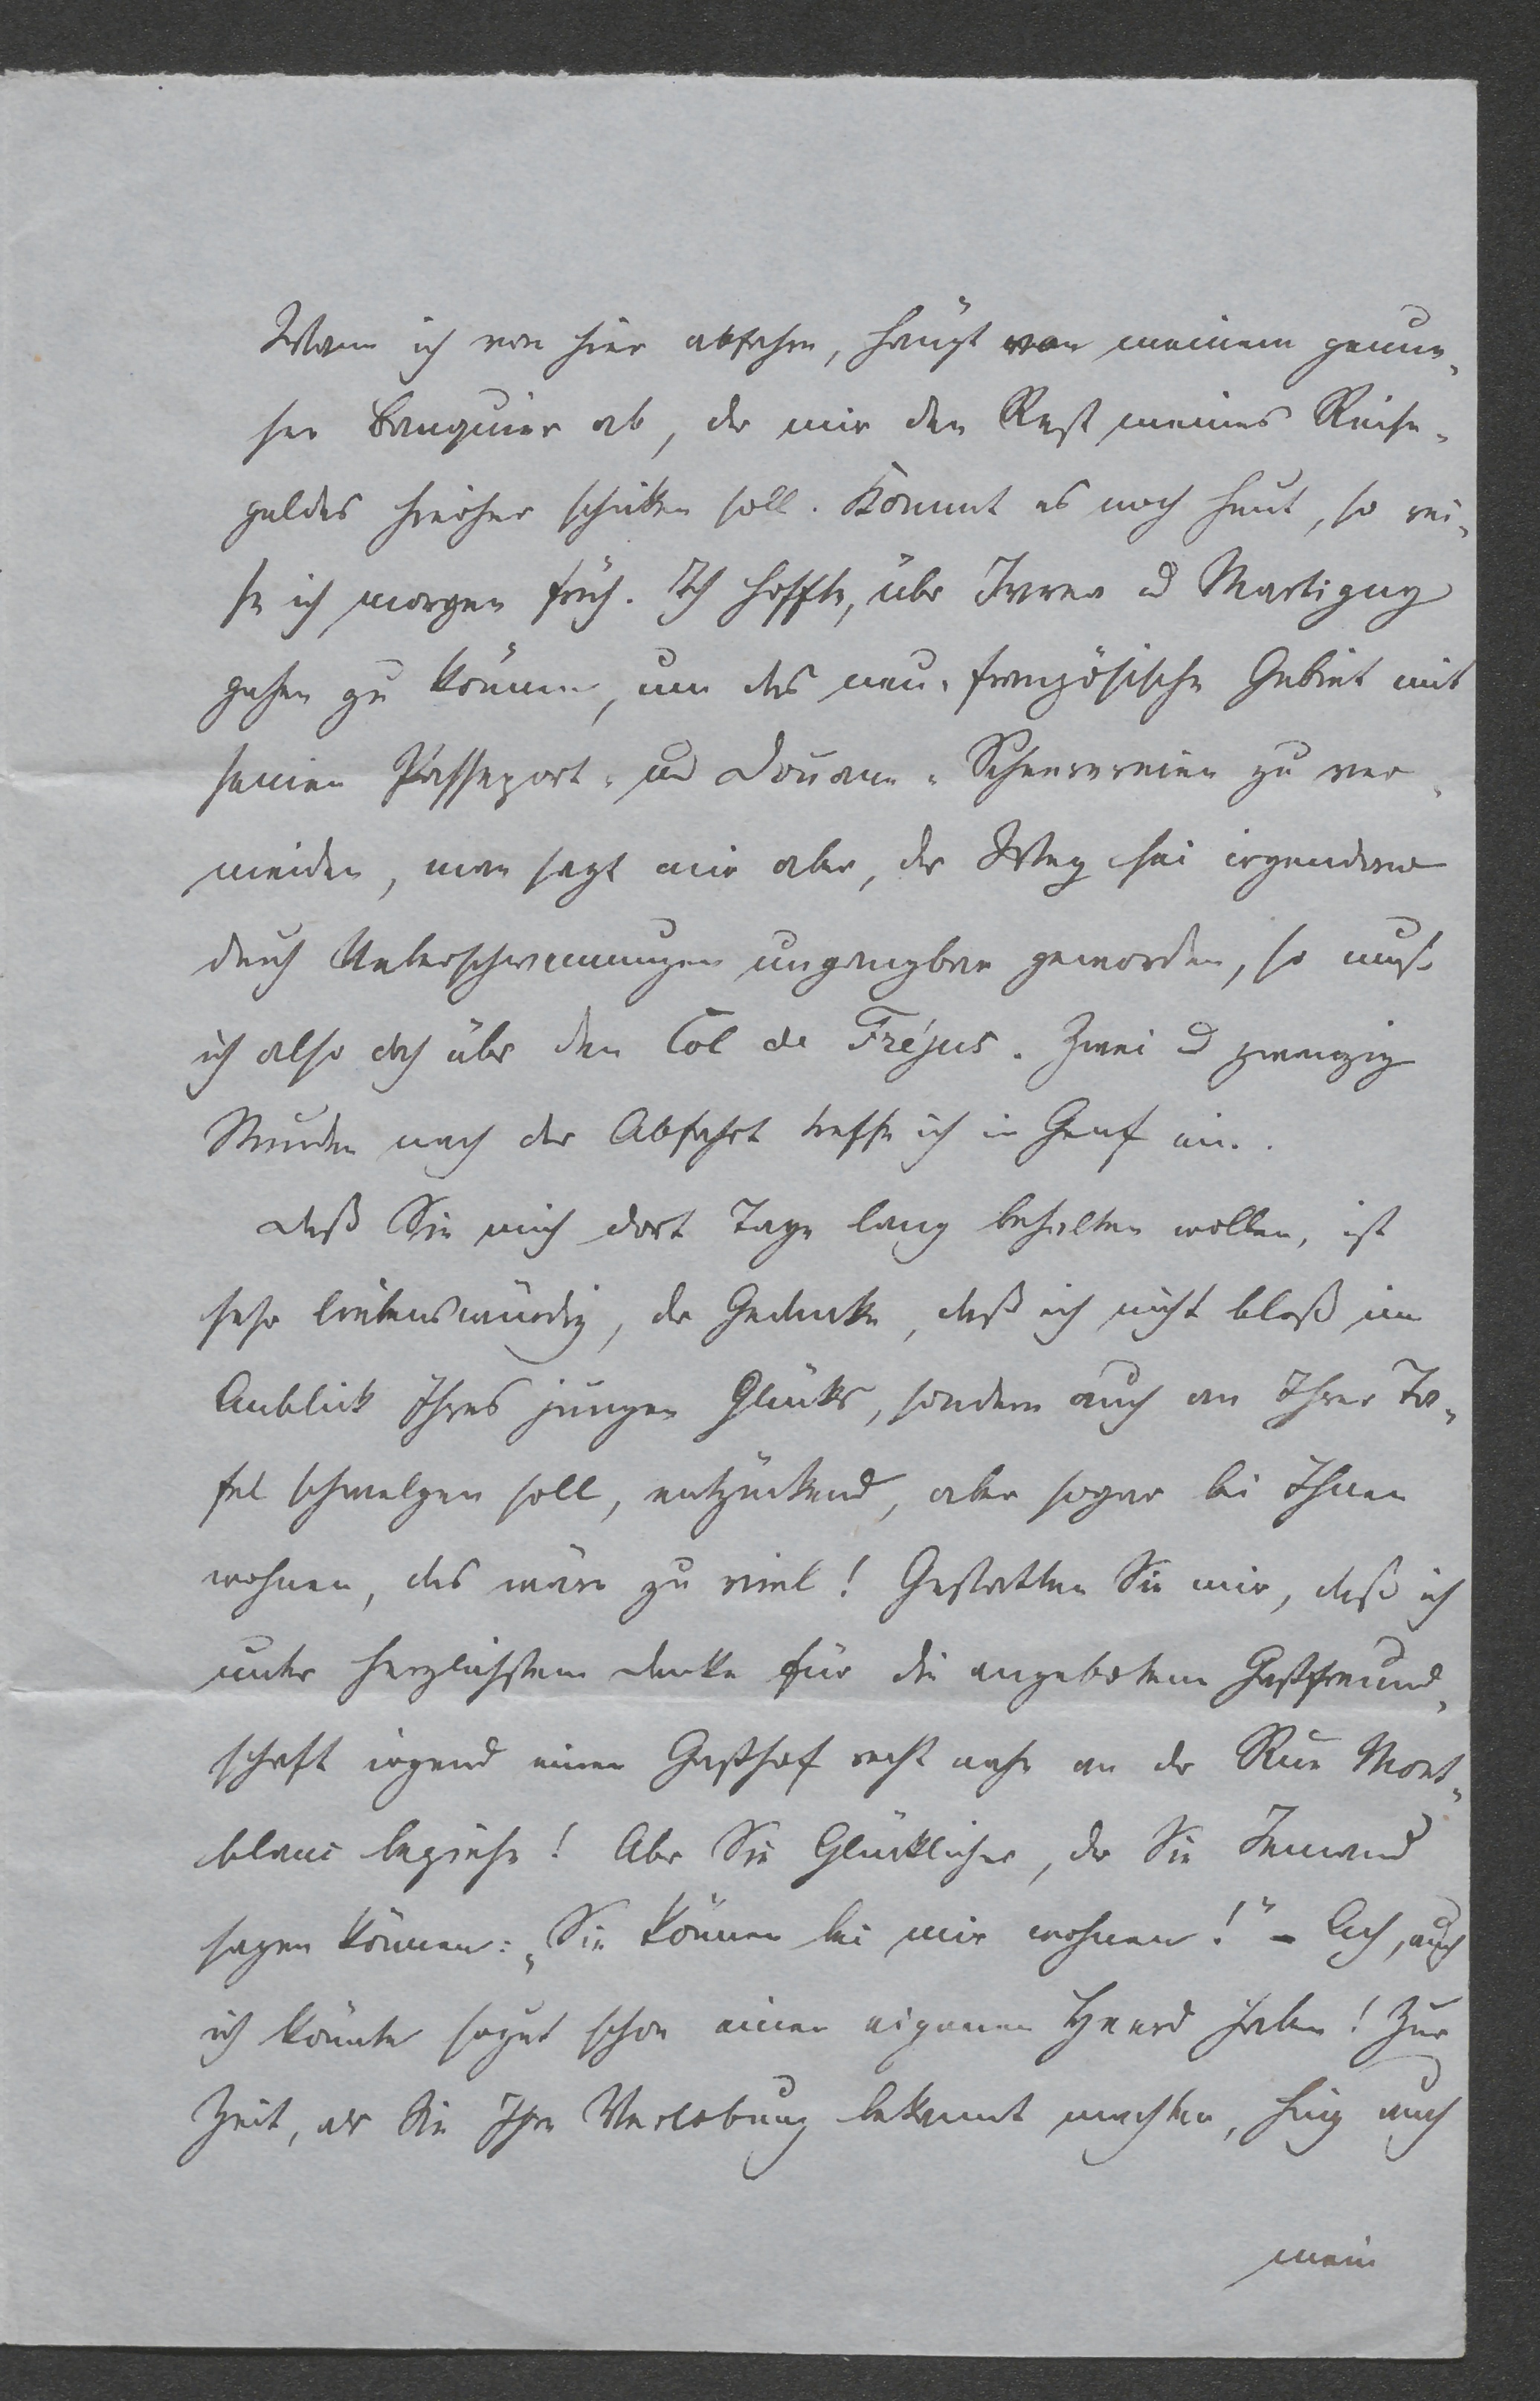 Wann ich von hier abfahre, hängt von meinem genue-
ser Banquier ab, der mir den Rest meines Reise-
geldes hierher schicken soll. Kommt es noch heut, so rei-
se ich morgen früh. Ich hoffte, über Ivrea u Martigny
gehen zu können, um das neu-französische Gebiet mit
seinen Passeport- und Douane-Scheerereien zu ver-
meiden, man sagt mir aber, der Weg sei irgendwo
durch Ueberschwemmungen ungangbar geworden, so muß
ich also doch über den Col de Fréjus. Zwei u zwanzig
Stunden nach der Abfahrt treffe ich in Genf ein.
Daß Sie mich dort Tage lang behalten wollen, ist
sehr liebenswürdig, der Gedanke, daß ich nicht bloß im
Anblick Ihres jungen Glücks, sondern auch an Ihrer Ta-
fel schwelgen soll, entzückend, aber sogar bei Ihnen
wohnen, das wäre zu viel! Gestatten Sie mir, daß ich
unter herzlichstem Danke für die angebotene Gastfreund-
schaft irgend einen Gasthof recht nahe an der Rue Mont-
blanc beziehe! Aber Sie Glücklicher, der Sie Jemand
sagen können: „Sie können bei mir wohnen!" – Ach, auch
ich könnte sogut schon einen eigenen Heerd haben! Zur
Zeit, als Sie Ihre Verlobung bekannt machten, hing auch
mein